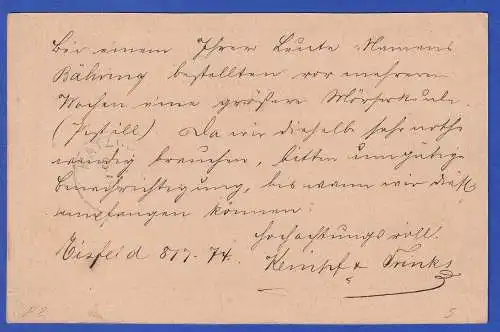 Bei einem Ihrer Leute Namens
Bähring bestellten vor mehreren
Wochen eine größere Mörserkeule
(Pistill) Da wir dieselbe sehr noth-
wendig brauchen, bitten um gütige
Benachrichtigung, bis wann wir diese
empfangen können.
Hochachtungsvoll.
Eisfeld 8/7. 74. Kempf & Trinks